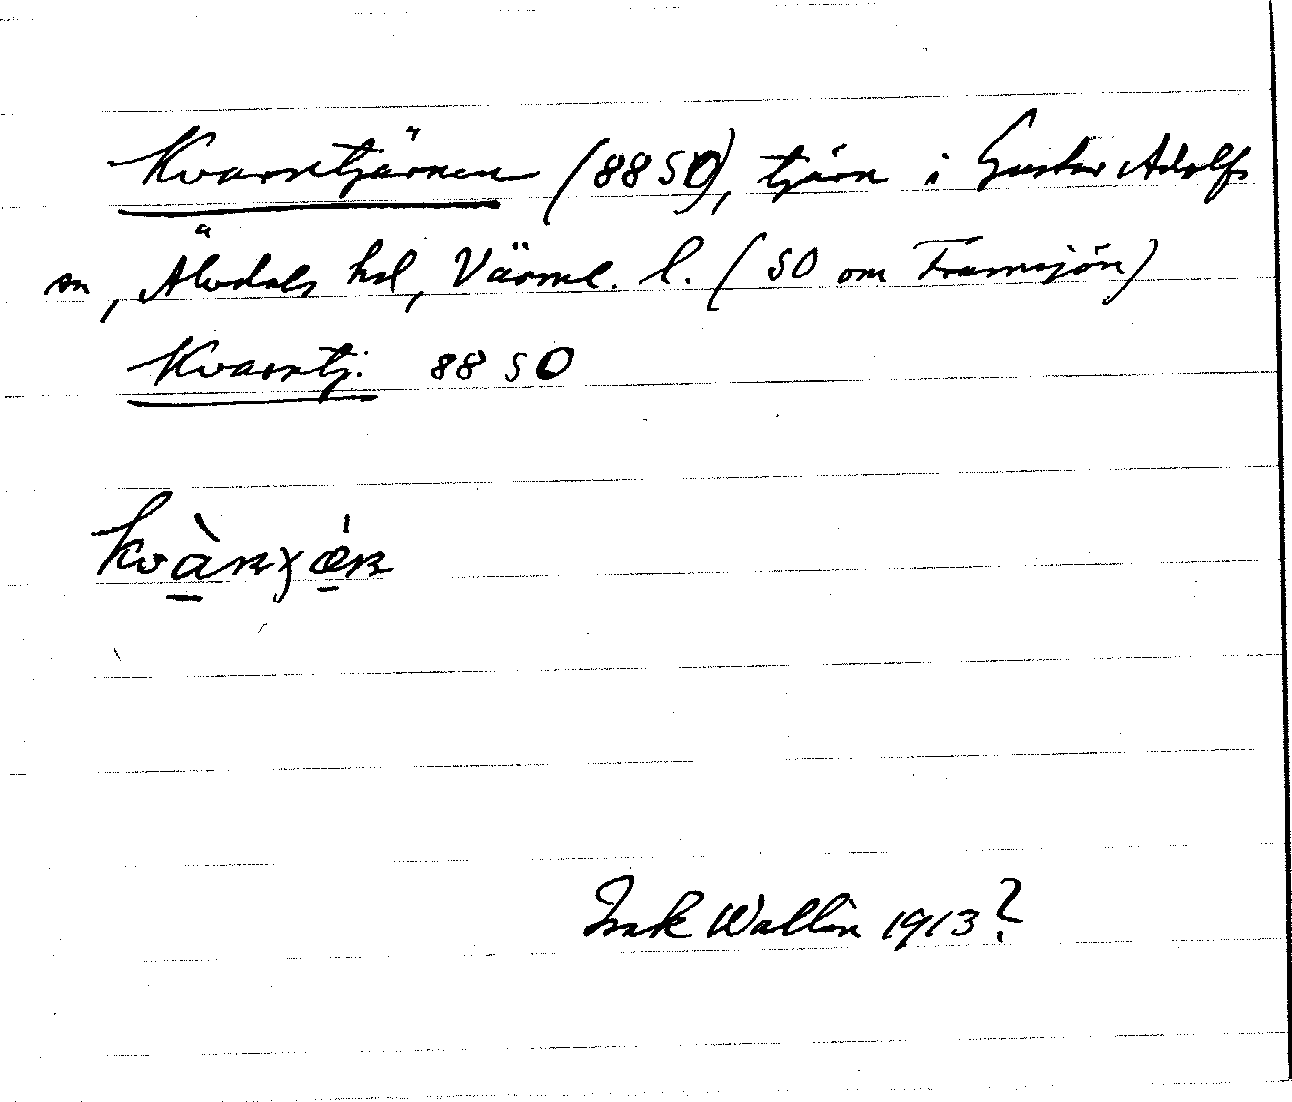 Kvarntjärnen (8850), tjärn i Gustav Adolfs
sn, Älvdals hd, Värml. l. (SO om Tramsjön)
Kvarntj. 8850
Isak Wallin 1913?